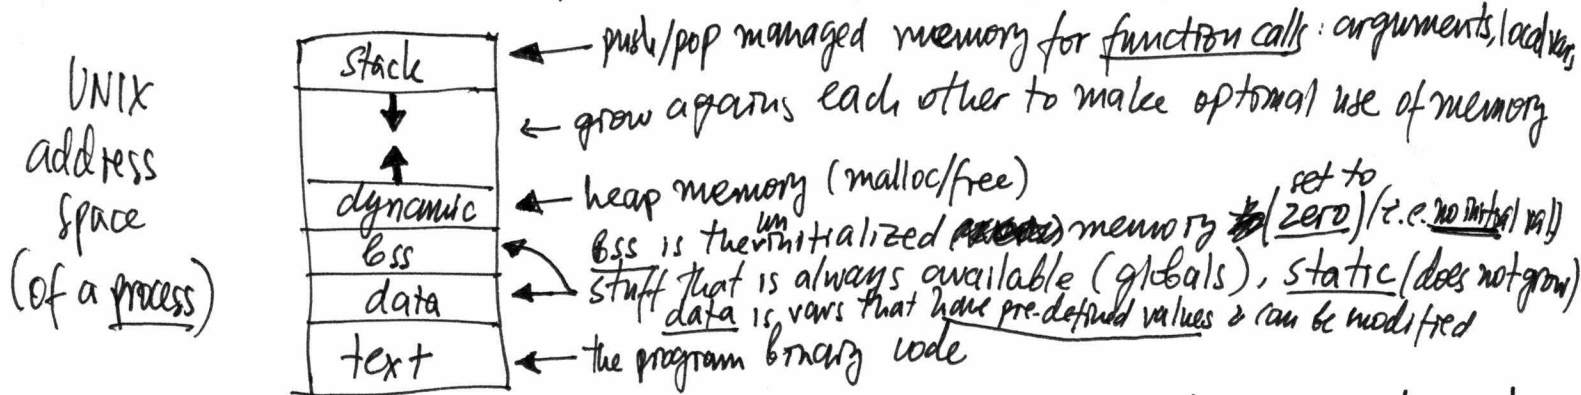 UNIX
address
space
(of a process)
stack
dynamic
bss
data
text
push/pop managed memory for function calls: arguments, local vars,
grow agains each other to make optimal use of memory
heap memory (malloc/free)
set to
un
bss is the initialized memory (zero) (i.e. no initial val)
stuff that is always available (globals), static (does not grow)
data is vars that have pre-defined values & can be modified
the program binary code